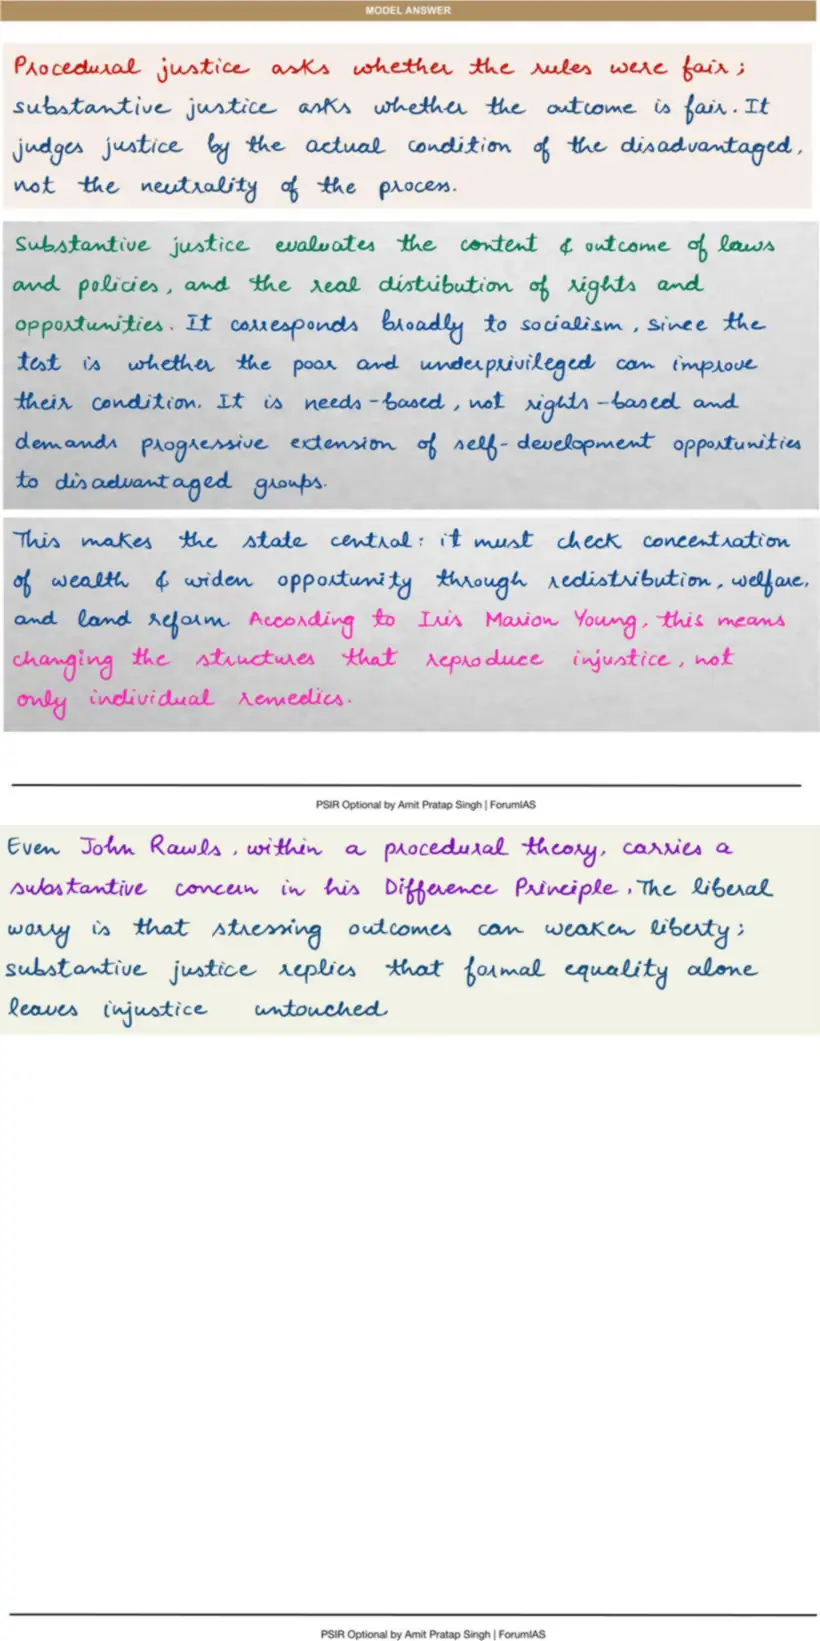 MODEL ANSWER
Procedural justice asks whether the rules were fair;
substantive justice asks whether the outcome is fair. It
judges justice by the actual condition of the disadvantaged,
not the neutrality of the process.
Substantive justice evaluates the content & outcome of laws
and policies, and the real distribution of rights and
opportunities. It corresponds broadly to socialism, since the
test is whether the poor and underprivileged can improve
their condition. It is needs-based, not rights-based and
demands progressive extension of self-development opportunities
to disadvantaged groups.
This makes the state central: it must check concentration
of wealth & widen opportunity through redistribution, welfare,
and land reform. According to Iris Marion Young, this means
changing the structures that reproduce injustice, not
only individual remedies.
PSIR Optional by Amit Pratap Singh | ForumIAS
Even John Rawls, within a procedural theory, carries a
substantive concern in his Difference Principle. The liberal
worry is that stressing outcomes can weaken liberty;
substantive justice replies that formal equality alone
leaves injustice untouched.
PSIR Optional by Amit Pratap Singh | ForumIAS